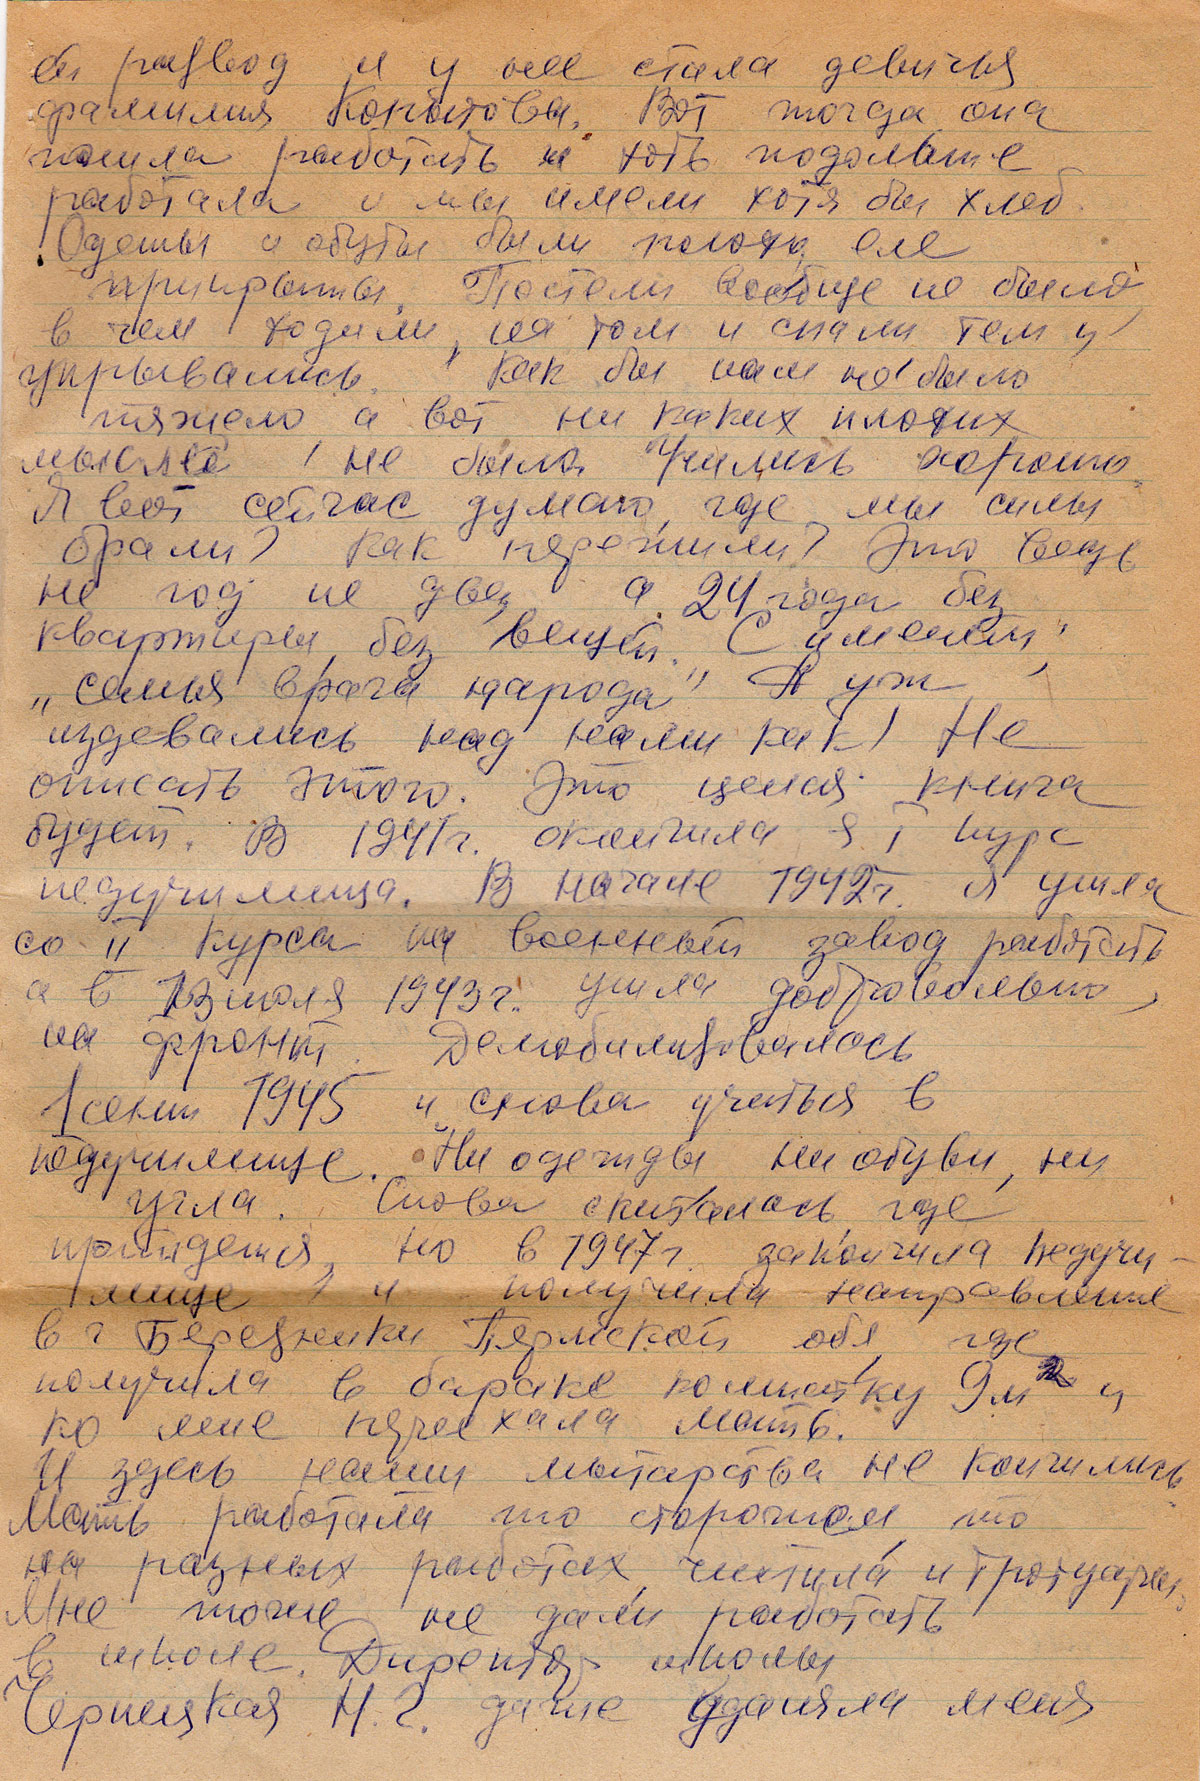 ей развод и у нее стала девичья
фамилия Конотова. Вот тогда она
пошла работать и хоть подольше
работала и мы имели хотя бы хлеб.
Одеты и обуты были плохо, еле
прикрыты. Постели вообще не было,
в чем ходили, на том и спали тем и
укрывались. Как бы нам не было
тяжело а вот ни каких плохих
мыслей не было. Учились хорошо.
Я вот сейчас думаю, где мы силы
брали? Как пережили? Это ведь
не год не два, а 24 года без
квартиры, без вещей. С именем
„семья врага народа" А уж
издевались над нами как! Не
описать этого. Это целая книга
будет. В 1941 г. окончила я I курс
педучилища. В начале 1942 г. я ушла
со II курса на военный завод работать
а в июля 1943 г. ушла добровольно,
на фронт. Демобилизовалась
1 сент 1945 и снова учиться в
педучилище. Ни одежды ни обуви, ни
угла. Снова скиталась, где
придется, но в 1947 г. закончила педучи-
лище и получила направление
в г Березники Пермской обл, где
получила в бараке комнатку 9 м² и
ко мне приехала мать.
И здесь наши мытарства не кончились.
Мать работала то сторожем, то
на разных работах, чистила и тротуары.
Мне тоже не дали работать
в школе. Директор школы
Черницкая Н. Г. даже удаляла меня